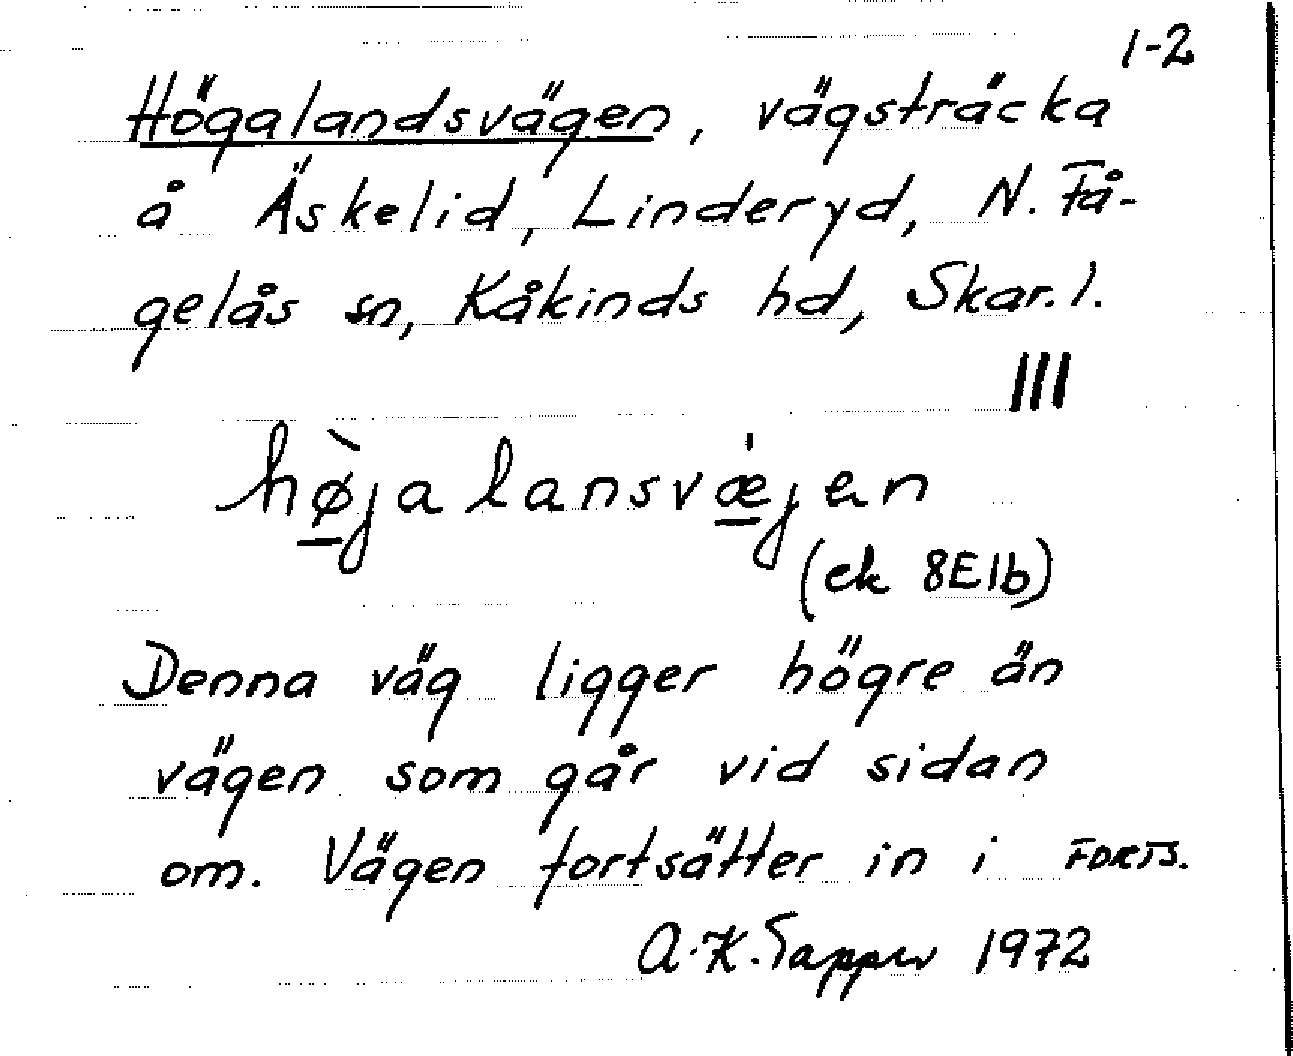 1-2
Högalandsvägen, vägsträcka
å Äskelid, Linderyd, N. Få-
gelås sn, Kåkinds hd, Skar. l.
III
hø̠̀jalansvæ̠̍jen
(ek 8E1b)
Denna väg ligger högre än
vägen som går vid sidan
om. Vägen fortsätter in i FORTS.
A.K. Tapper 1972